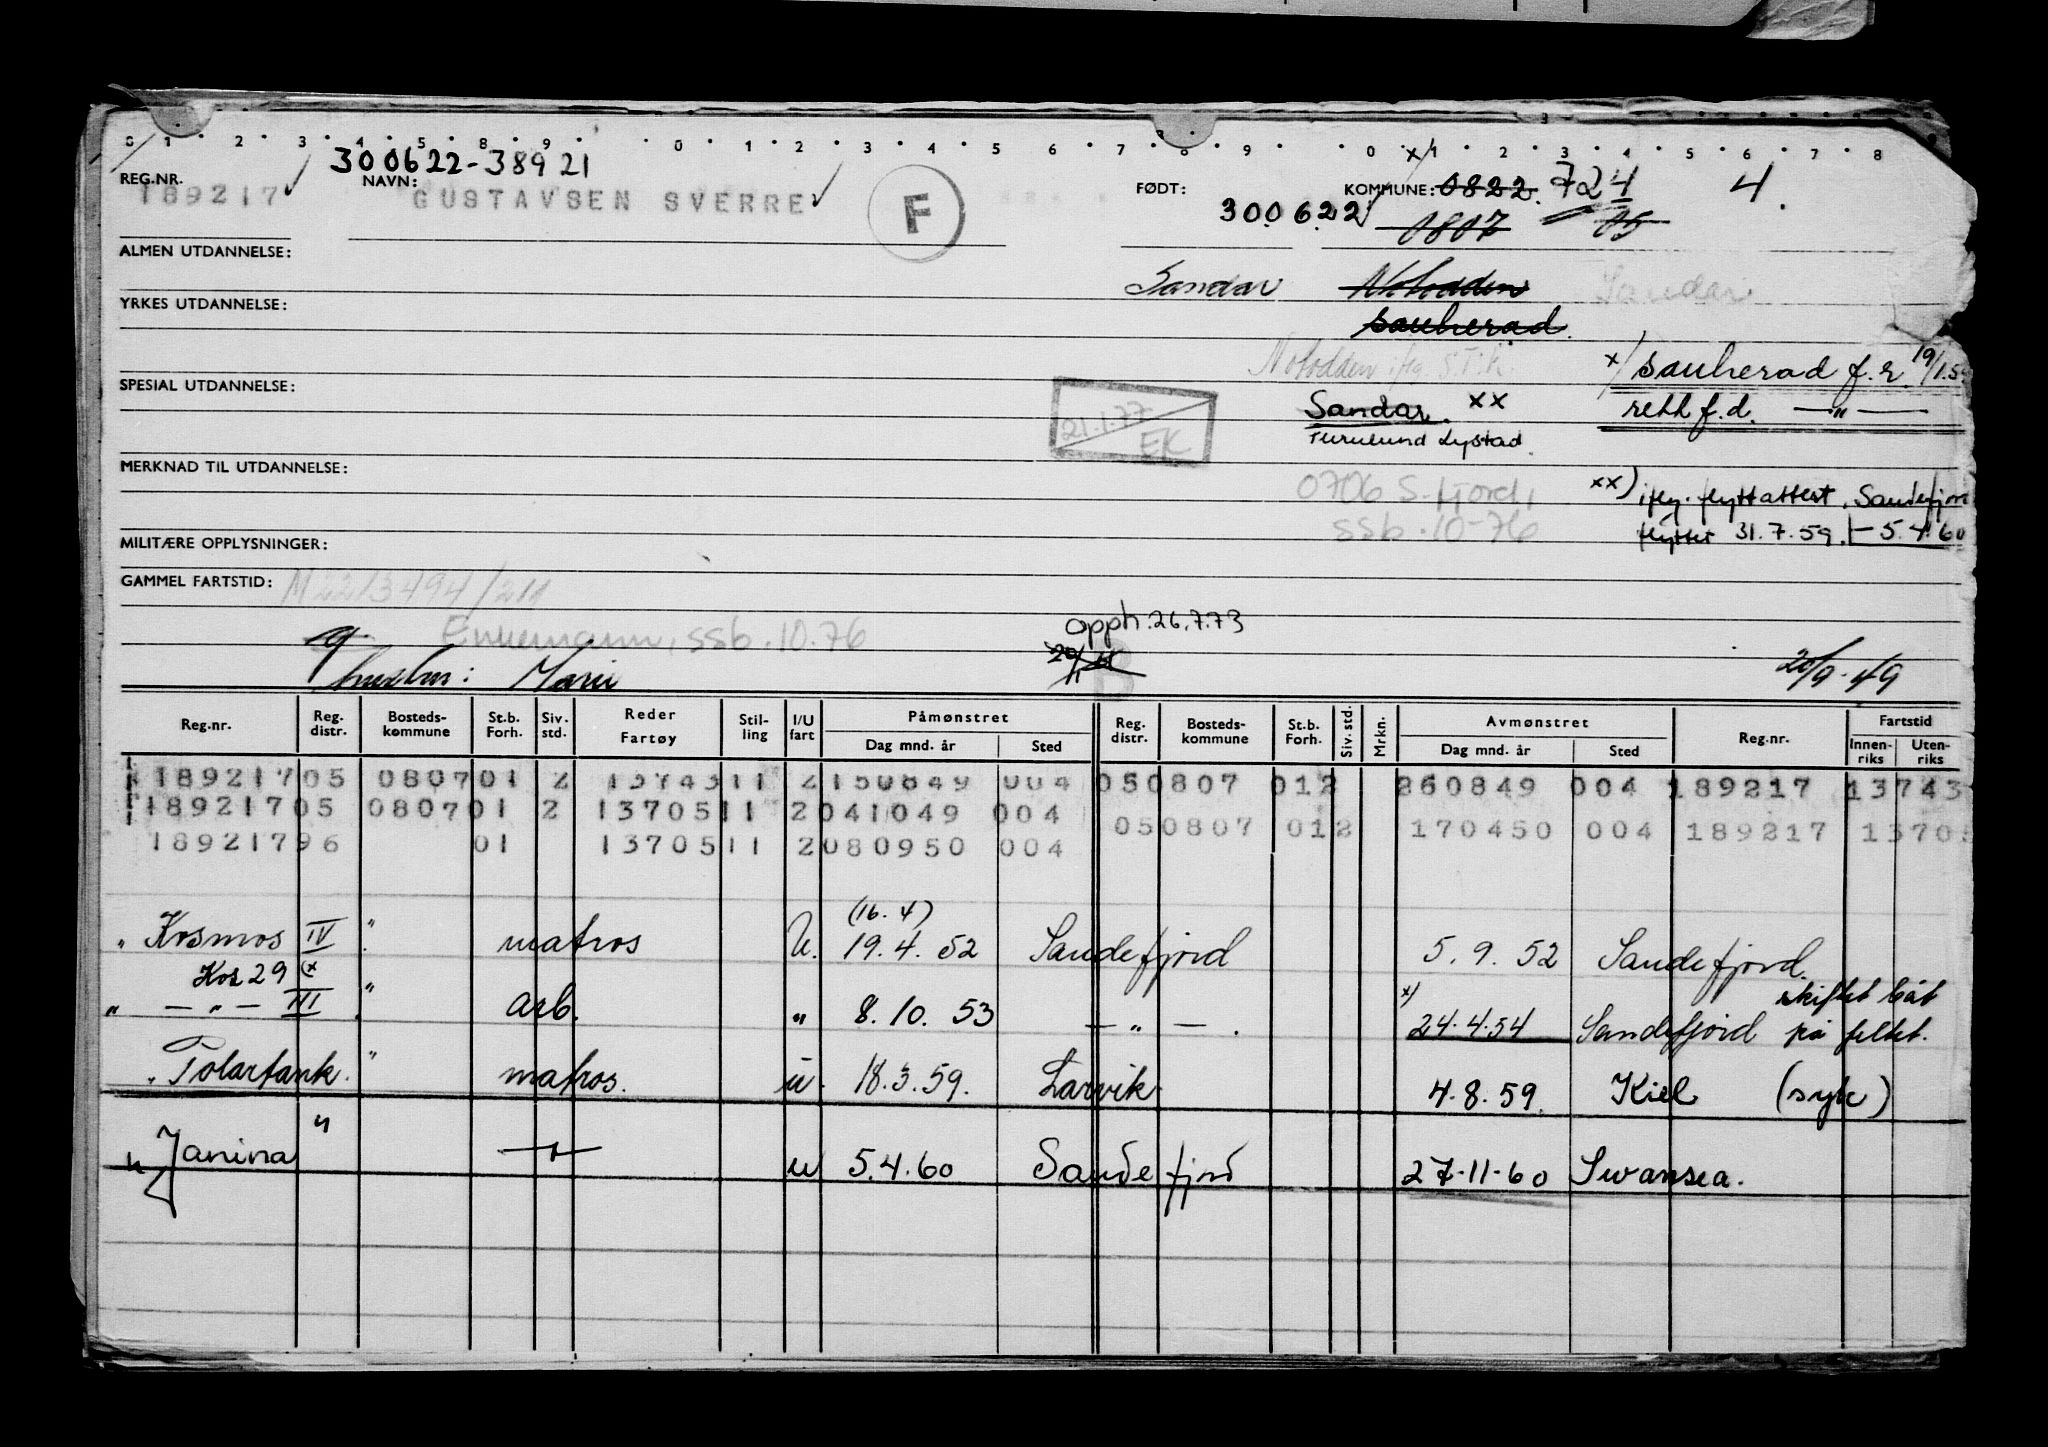 0 1 · 2 · 3 · 4 · 5 · 8 · 9 · 0 · 1 · 2 · 3 · 4 · 5 6 · 7 · 8 · 9 · 0 · 1 · 2 · 3 · 4 · 5 · 6 · 7 · 8
REG.NR. 300622-38921 x/
189217 NAVN: GUSTAVSEN SVERRE F FØDT: 300622 KOMMUNE: 0822. 724 4.
0807 05
ALMEN UTDANNELSE:
Sandar Notodden Sandar
YRKES UTDANNELSE:
Sauherad.
Notodden iflg. S.T.K. x/ Sauherad f.r. 19/1.59
SPESIAL UTDANNELSE:
21.1.77 EK Sandar xx rett f.d. — " —
Lystad
MERKNAD TIL UTDANNELSE:
0706 S.fjord, xx) iflg. flyttattest, Sandefjord
ssb.10-76 flyttet 31.7.59. - 5.4.60
MILITÆRE OPPLYSNINGER:
GAMMEL FARTSTID: M22/3494/211
Opph. 26.7.73
g Enkemann, ssb.10.76
hustru: Marie 20/9-49
Reg.nr. Reg. distr. Bosteds- kommune St.b. Forh. Siv. std. Reder Fartøy Stil- ling I/U fart Påmønstret Reg. distr. Bosteds- kommune St.b. Forh. Siv. std. Mrkn. Avmønstret Reg.nr. Fartstid
Dag mnd. år Sted Dag mnd. år Sted Innen- riks Uten- riks
189217 05 0807 01 2 13743 11 2 150849 004 05 0807 01 2 260849 004 189217 13743
189217 05 0807 01 2 13705 11 2 041049 004 05 0807 01 2 170450 004 189217 13705
189217 96 01 13705 11 2 080950 004
(16.4)
" Kosmos IV " matros U. 19.4.52 Sandefjord 5.9.52 Sandefjord.
Kos 29 (x skiftet båt
" — " — III " arb. " 8.10.53 — " — . x) 24.4.54 Sandefjord på feltet.
" Polartank. " matros. u. 18.3.59. Larvik 4.8.59. Kiel (syk)
" Janina " — " — u 5.4.60 Sandefjord 27-11-60 Swansea.